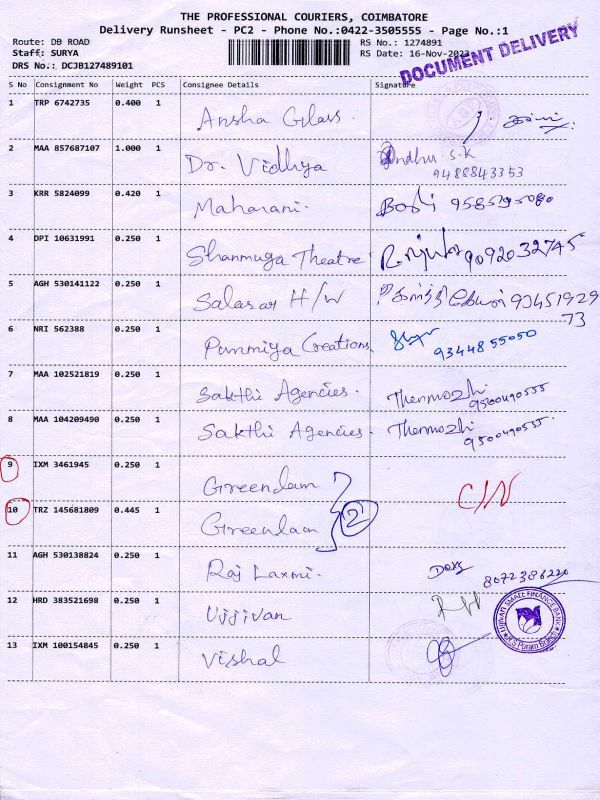 THE PROFESSIONAL COURIERS, COIMBATORE
Delivery Runsheet - PC2 - Phone No.:0422-3505555 - Page No.:1
Route: DB ROAD
RS No.: 1274891
Staff: SURYA
RS Date: 16-Nov-2023
DRS No.: DCJB127489101
DOCUMENT DELIVERY
S No Consignment No Weight PCS Consignee Details Signature
1 TRP 6742735 0.400 1 Ansha Glass.
2 MAA 857687107 1.000 1 Dr. Vidhya Indhu S.K
9488843353
3 KRR 5824099 0.420 1 Maharani.
4 DPI 10631991 0.250 1 Shanmuga Theatre 9092032745
5 AGH 530141122 0.250 1 Salasar H/W 93451929
73
6 NRI 562388 0.250 1 Punmiya Creations 9344855050
7 MAA 102521819 0.250 1 Sakthi Agencies. Thenmozhi
9500490555
8 MAA 104209490 0.250 1 Sakthi Agencies. Thenmozhi
9500490555
9 IXM 3461945 0.250 1 Greenlam
C/N
10 TRZ 145681809 0.445 1 Greenlam 2
11 AGH 530138824 0.250 1 Raj Laxmi. 8072386220
12 HRD 383521698 0.250 1 Ujjivan
UJJIVAN SMALL FINANCE BANK
R.S Puram Branch
13 IXM 100154845 0.250 1 Vishal